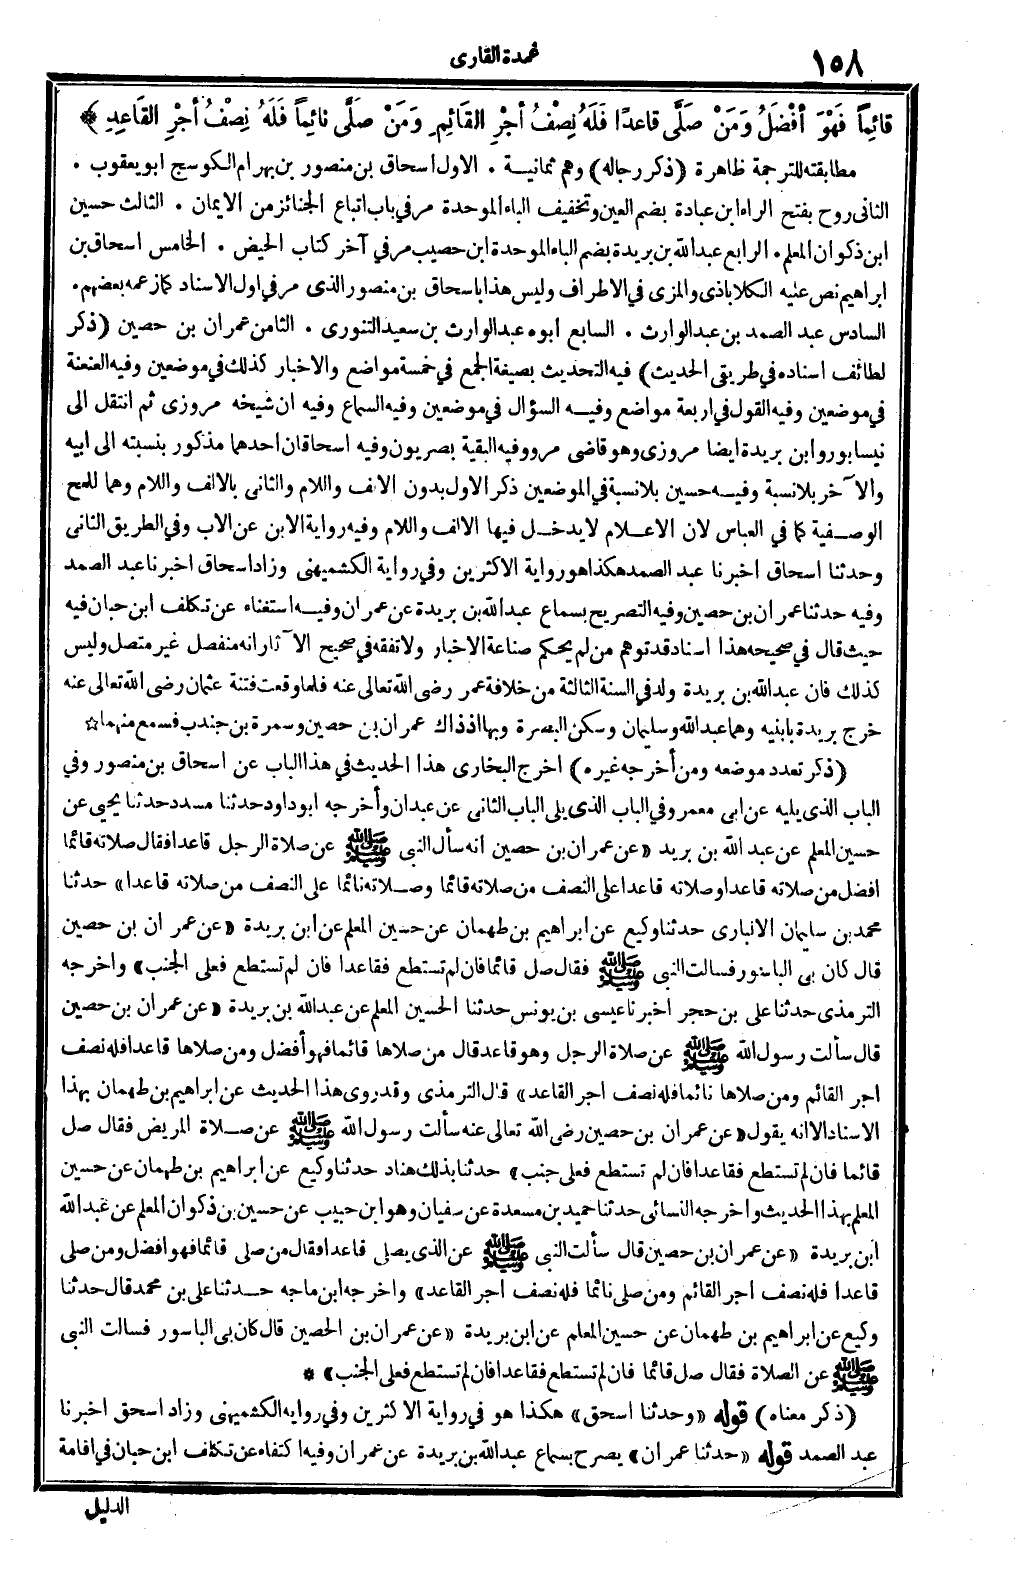 ١٥٨
عمدة القارى
قائِماً فَهْوَ أفْضَلُ وَمَنْ صَلَّى قاعدًا فَلَهُ نِصْفُ أجْرِ القَائِمِ وَمَنْ صَلَّى نائِماً فَلَهُ نِصْفُ أجْرِ القَاعِدِ ﴾
مطابقته للترجمة ظاهرة (ذكر رجاله) وهم ثمانية . الاول اسحاق بن منصور بن بهرام الكوسج ابو يعقوب .
الثانى روح بفتح الراء ابن عبادة بضم العين وتخفيف الباء الموحدة مر فى باب اتباع الجنائز من الايمان . الثالث حسين
ابن ذكوان المعلم . الرابع عبد الله بن بريدة بضم الباء الموحدة ابن حصيب مر في آخر كتاب الحيض . الخامس اسحاق بن
ابراهيم نص عليه الكلاباذى والمزى في الاطراف وليس هذا باسحاق بن منصور الذى مر في اول الاسناد كما زعمه بعضهم .
السادس عبد الصمد بن عبد الوارث . السابع ابوه عبد الوارث بن سعيد التنورى . الثامن عمران بن حصين (ذكر
لطائف اسناده في طريقى الحديث) فيه التحديث بصيغة الجمع في خمسة مواضع والاخبار كذلك في موضعين وفيه العنعنة
في موضعين وفيه القول في اربعة مواضع وفيه السؤال في موضعين وفيه السماع وفيه ان شيخه مروزى ثم انتقل الى
نيسابور وابن بريدة ايضا مروزى وهو قاضى مرو وفيه البقية بصريون وفيه اسحاقان احدهما مذكور بنسبته الى ابيه
والآخر بلا نسبة وفيه حسين بلا نسبة في الموضعين ذكر الاول بدون الالف واللام والثانى بالالف واللام وهما للمح
الوصفية كما في العباس لان الاعلام لا يدخل فيها الالف واللام وفيه رواية الابن عن الاب وفي الطريق الثانى
وحدثنا اسحاق اخبرنا عبد الصمد هكذا هو رواية الاكثرين وفي رواية الكشميهنى وزاد اسحاق اخبرنا عبد الصمد
وفيه حدثنا عمران بن حصين وفيه التصريح بسماع عبد الله بن بريدة عن عمران وفيه استغناء عن تكلف ابن حبان فيه
حيث قال في صحيحه هذا اسناد قد توهم من لم يحكم صناعة الاخبار ولا تفقه في صحيح الآثار انه منفصل غير متصل وليس
كذلك فان عبد الله بن بريدة ولد في السنة الثالثة من خلافة عمر رضى الله تعالى عنه فلما وقعت فتنة عثمان رضى الله تعالى عنه
خرج بريدة بابنيه وهما عبد الله وسليمان وسكن البصرة وبها اذ ذاك عمران بن حصين وسمرة بن جندب فسمع منهما ☆
(ذكر تعدد موضعه ومن أخرجه غيره) اخرج البخارى هذا الحديث في هذا الباب عن اسحاق بن منصور وفي
الباب الذى يليه عن ابى معمر وفي الباب الذى يلى الباب الثانى عن عبدان وأخرجه ابو داود حدثنا مسدد حدثنا يحيى عن
حسين المعلم عن عبد الله بن بريد «عن عمران بن حصين انه سأل النبى ﷺ عن صلاة الرجل قاعدا فقال صلاته قائما
افضل من صلاته قاعدا وصلاته قاعدا على النصف من صلاته قائما وصلاته نائما على النصف من صلاته قاعدا» حدثنا
محمد بن سليمان الانبارى حدثنا وكيع عن ابراهيم بن طهمان عن حسين المعلم عن ابن بريدة «عن عمران بن حصين
قال كان بى الباسور فسالت النبى ﷺ فقال صل قائما فان لم تستطع فقاعدا فان لم تستطع فعلى الجنب» واخرجه
الترمذى حدثنا على بن حجر اخبرنا عيسى بن يونس حدثنا الحسين المعلم عن عبد الله بن بريدة «عن عمران بن حصين
قال سألت رسول الله ﷺ عن صلاة الرجل وهو قاعد قال من صلاها قائما فهو أفضل ومن صلاها قاعدا فله نصف
اجر القائم ومن صلاها نائما فله نصف اجر القاعد» قال الترمذى وقد روى هذا الحديث عن ابراهيم بن طهمان بهذا
الاسناد الا انه يقول «عن عمران بن حصين رضى الله تعالى عنه سألت رسول الله ﷺ عن صلاة المريض فقال صل
قائما فان لم تستطع فقاعدا فان لم تستطع فعلى جنب» حدثنا بذلك هناد حدثنا وكيع عن ابراهيم بن طهمان عن حسين
المعلم بهذا الحديث واخرجه النسائى حدثنا حميد بن مسعدة عن سفيان وهو ابن حبيب عن حسين بن ذكوان المعلم عن عبد الله
ابن بريدة «عن عمران بن حصين قال سألت النبى ﷺ عن الذى يصلى قاعدا فقال من صلى قائما فهو افضل ومن صلى
قاعدا فله نصف اجر القائم ومن صلى نائما فله نصف اجر القاعد» واخرجه ابن ماجه حدثنا على بن محمد قال حدثنا
وكيع عن ابراهيم بن طهمان عن حسين المعلم عن ابن بريدة «عن عمران بن الحصين قال كان بى الباسور فسالت النبى
ﷺ عن الصلاة فقال صل قائما فان لم تستطع فقاعدا فان لم تستطع فعلى الجنب» *
(ذكر معناه) قوله «وحدثنا اسحق» هكذا هو في رواية الاكثرين وفي روايه الكشميهنى وزاد اسحق اخبرنا
عبد الصمد قوله «حدثنا عمران» يصرح بسماع عبد الله بن بريدة عن عمران وفيه اكتفاء عن تكلف ابن حبان في اقامة
الدليل